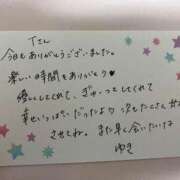 Tさん
今日もありがとうございました。
楽しい時間をありがとう♥
優しくしてくれて、ぎゅーっとしてくれて
幸せいっぱいだったよ 次もたくさん
させてね。また早く会いたいな
ゆき